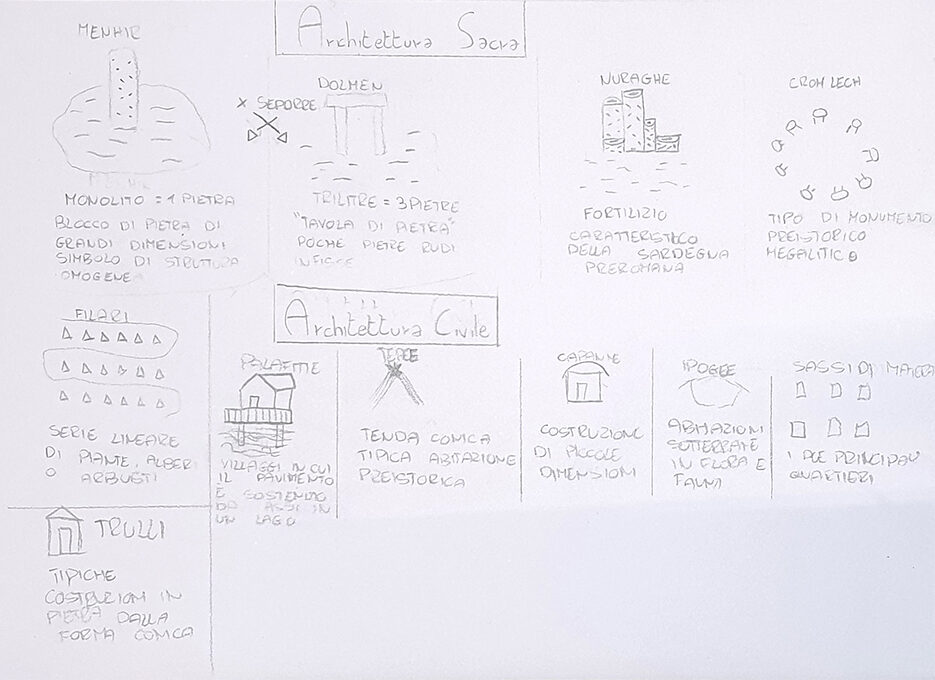 Architettura Sacra
MENHIR
MONOLITO = 1 PIETRA
BLOCCO DI PIETRA DI
GRANDI DIMENSIONI
SIMBOLO DI STRUTTURA
OMOGENEA
DOLMEN
x SEPORRE
TRILITRE = 3 PIETRE
"TAVOLA DI PIETRA"
POCHE PIETRE RUDI
INFICCE
NURAGHE
FORTILIZIO
CARATTERISTICO
DELLA SARDEGNA
PREROMANA
CROMLECH
TIPO DI MONUMENTO
PREISTORICO
MEGALITICO
Architettura Civile
FILARI
SERIE LINEARE
DI PIANTE, ALBERI
O ARBUSTI
PALAFITTE
VILLAGGI IN CUI
IL PAVIMENTO
È SOSTENUTO
DA ASSI IN
UN LAGO
TENDA CONICA
TIPICA ABITAZIONE
PREISTORICA
CAPANNE
COSTRUZIONE
DI PICCOLE
DIMENSIONI
IPOGEE
ABITAZIONI
SOTTERRATE
IN FLORA E
FAUNA
SASSI DI MATERA
I DUE PRINCIPALI
QUARTIERI
TRULLI
TIPICHE
COSTRUZIONI IN
PIETRA DALLA
FORMA CONICA